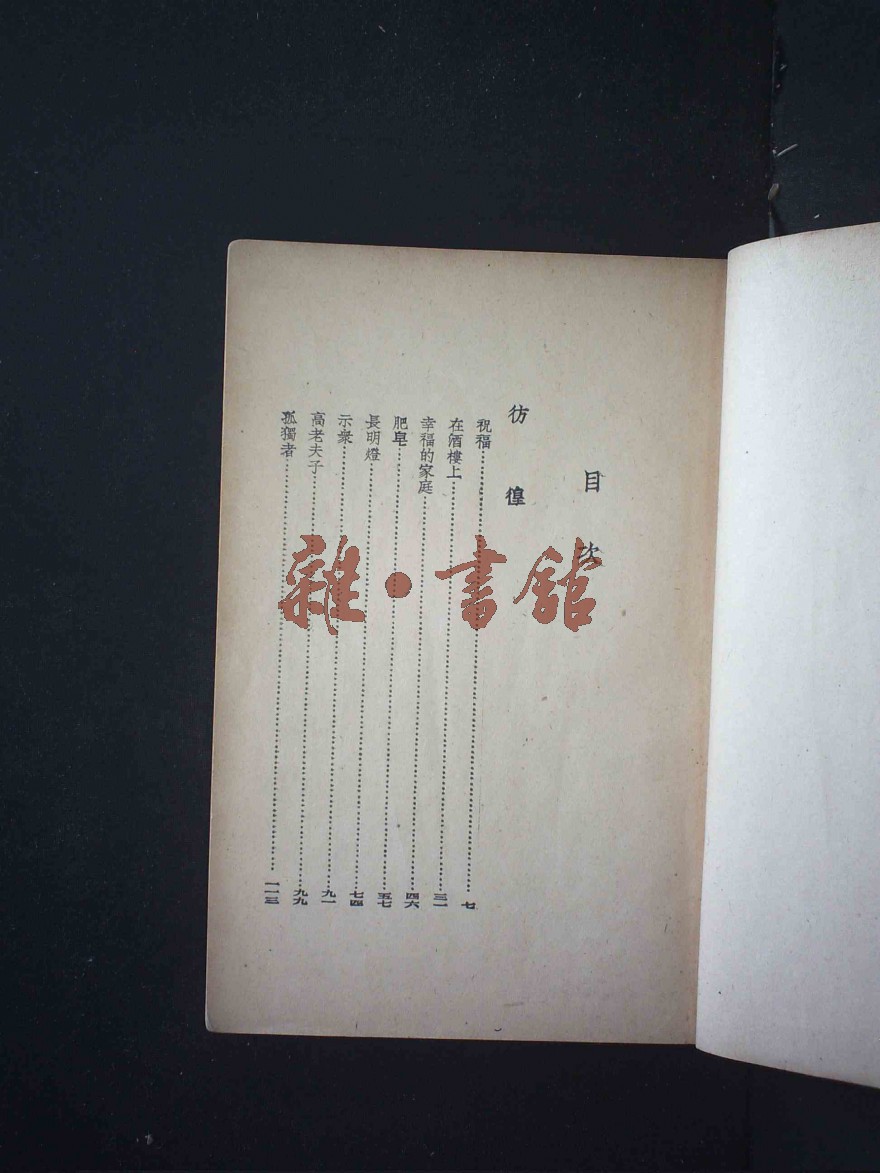 目次
彷徨
祝福……七
在酒樓上……三一
幸福的家庭……四六
肥皂……五七
長明燈……七四
示衆……九一
高老夫子……九九
孤獨者……一一三
雜·書館